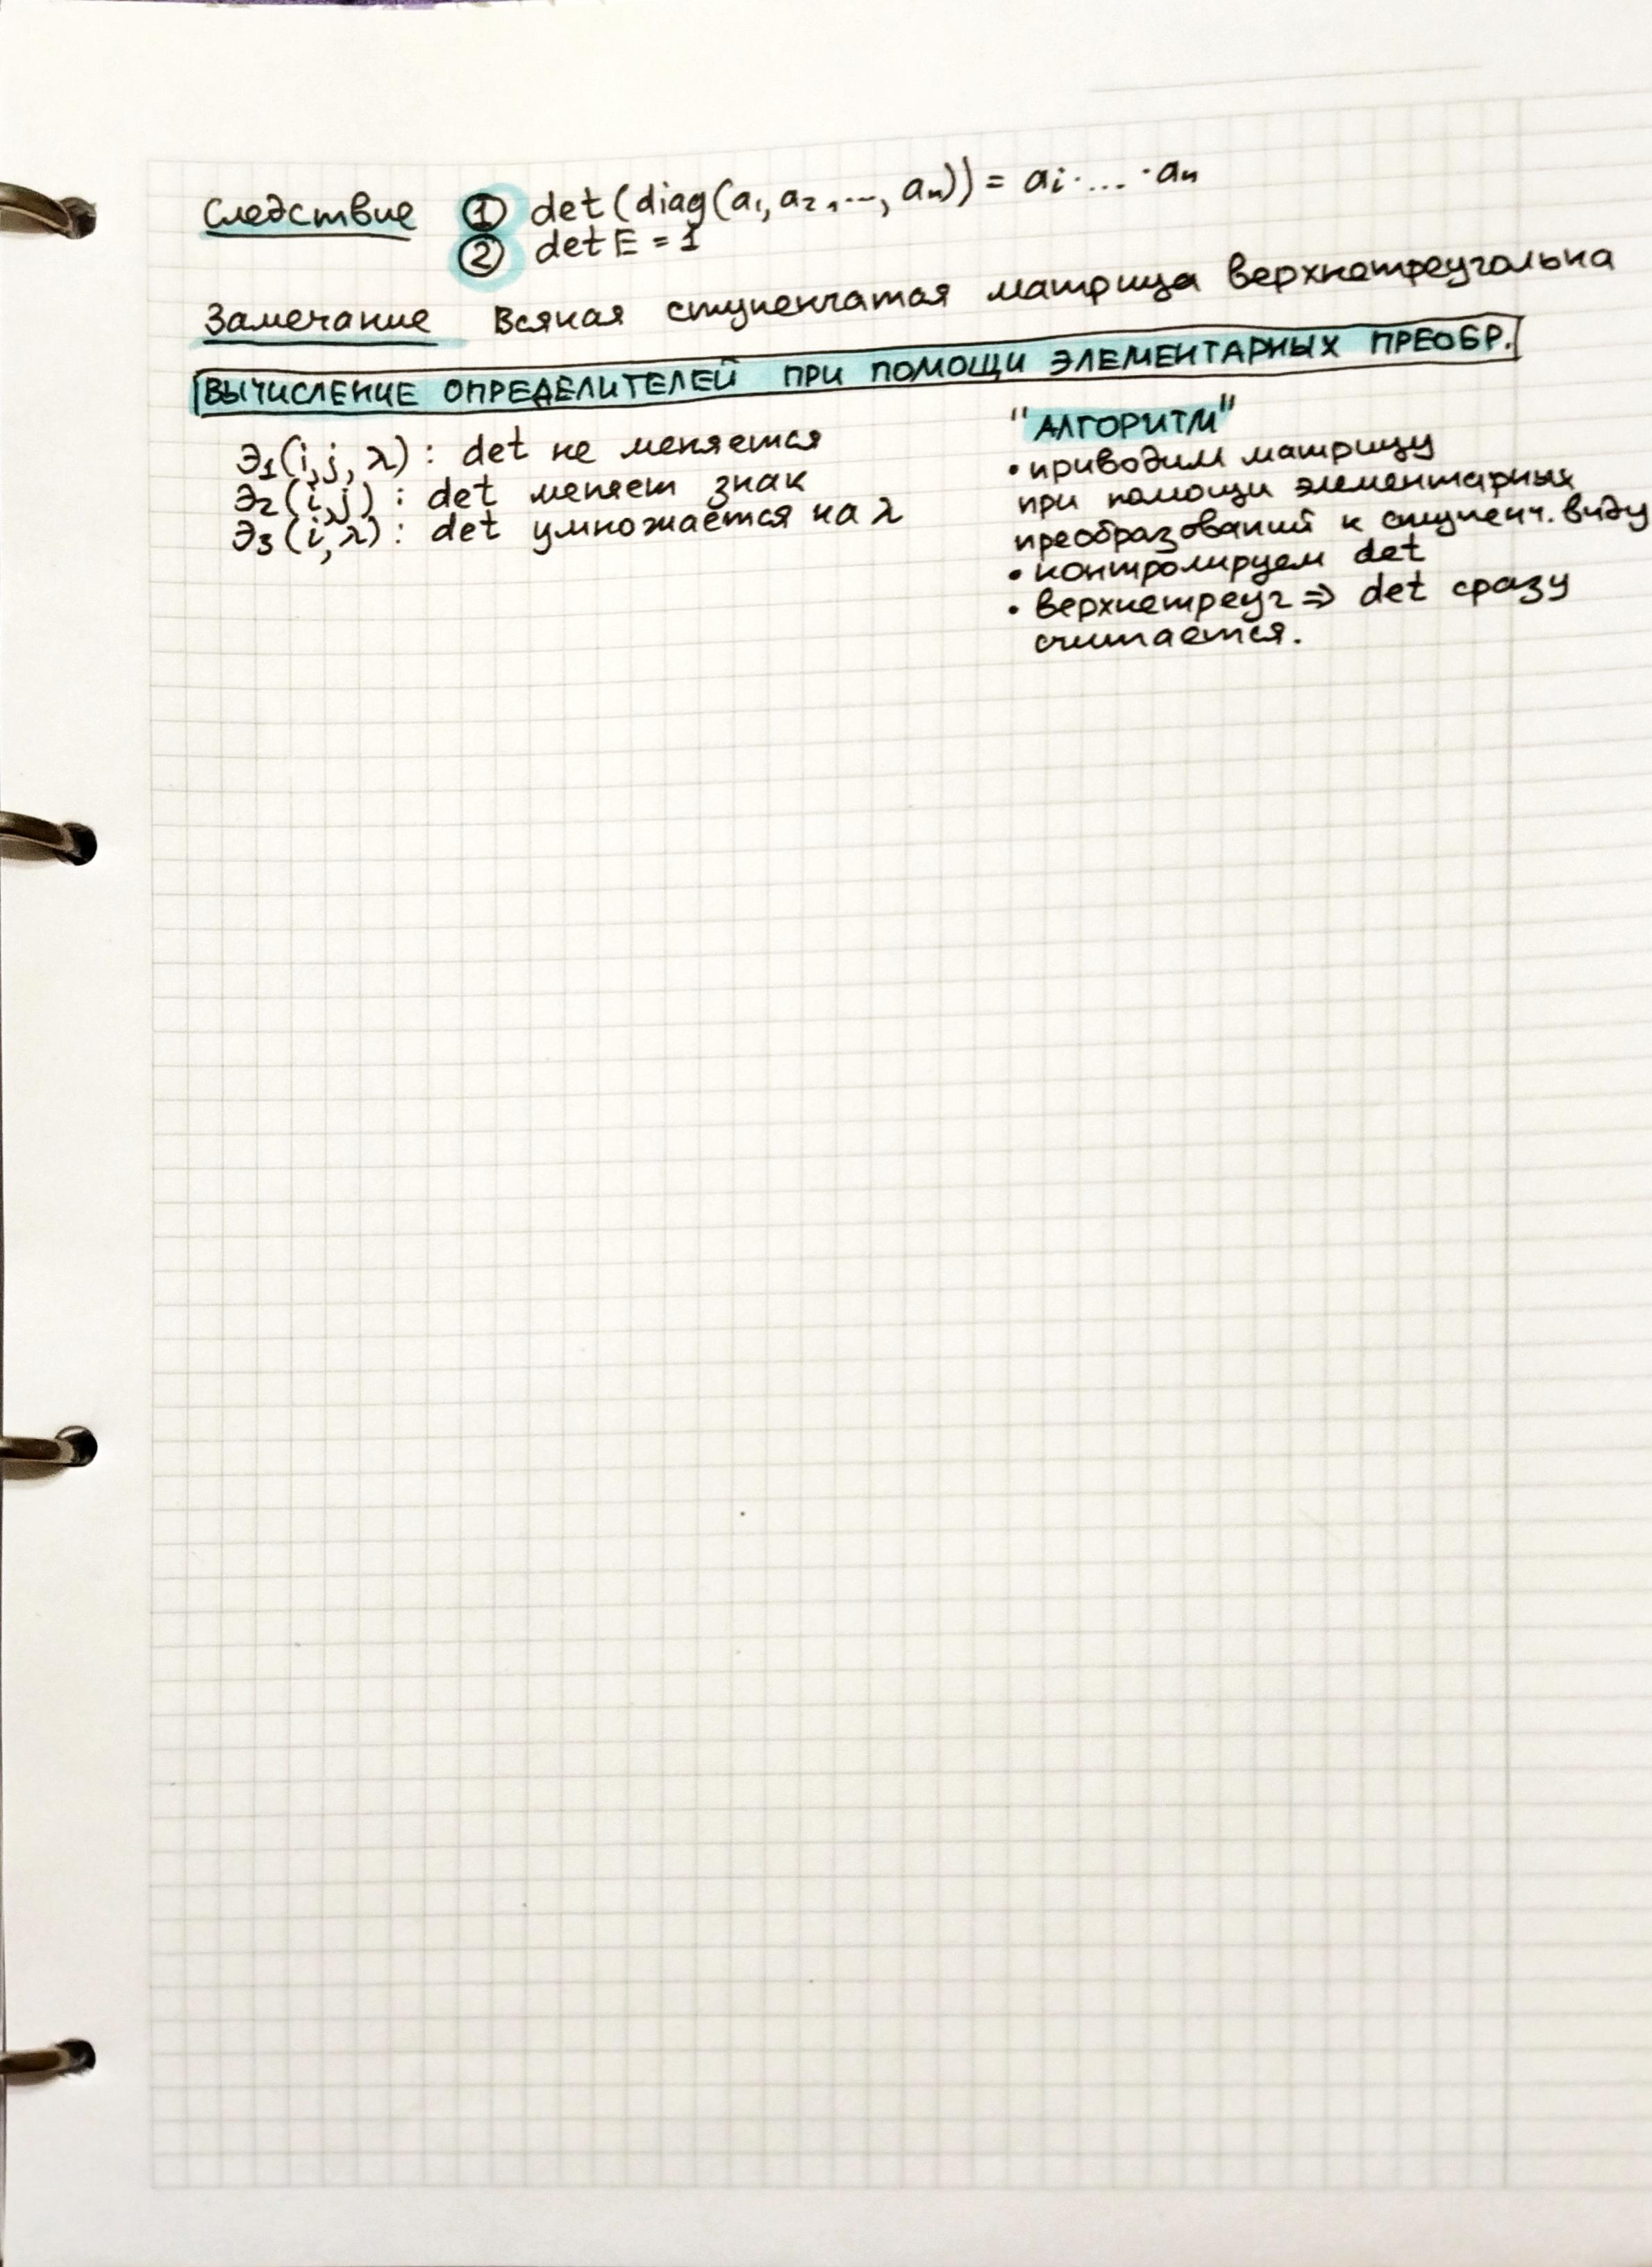 Следствие ① det(diag(a₁, a₂, ..., aₙ)) = aᵢ · ... · aₙ
② det E = 1
Замечание Всякая ступенчатая матрица верхнетреугольна
ВЫЧИСЛЕНИЕ ОПРЕДЕЛИТЕЛЕЙ ПРИ ПОМОЩИ ЭЛЕМЕНТАРНЫХ ПРЕОБР.
Э₁(i,j,λ): det не меняется
Э₂(i,j): det меняет знак
Э₃(i,λ): det умножается на λ
"АЛГОРИТМ"
• приводим матрицу
при помощи элементарных
преобразований к ступенч. виду
• контролируем det
• верхнетреуг ⇒ det сразу
считается.